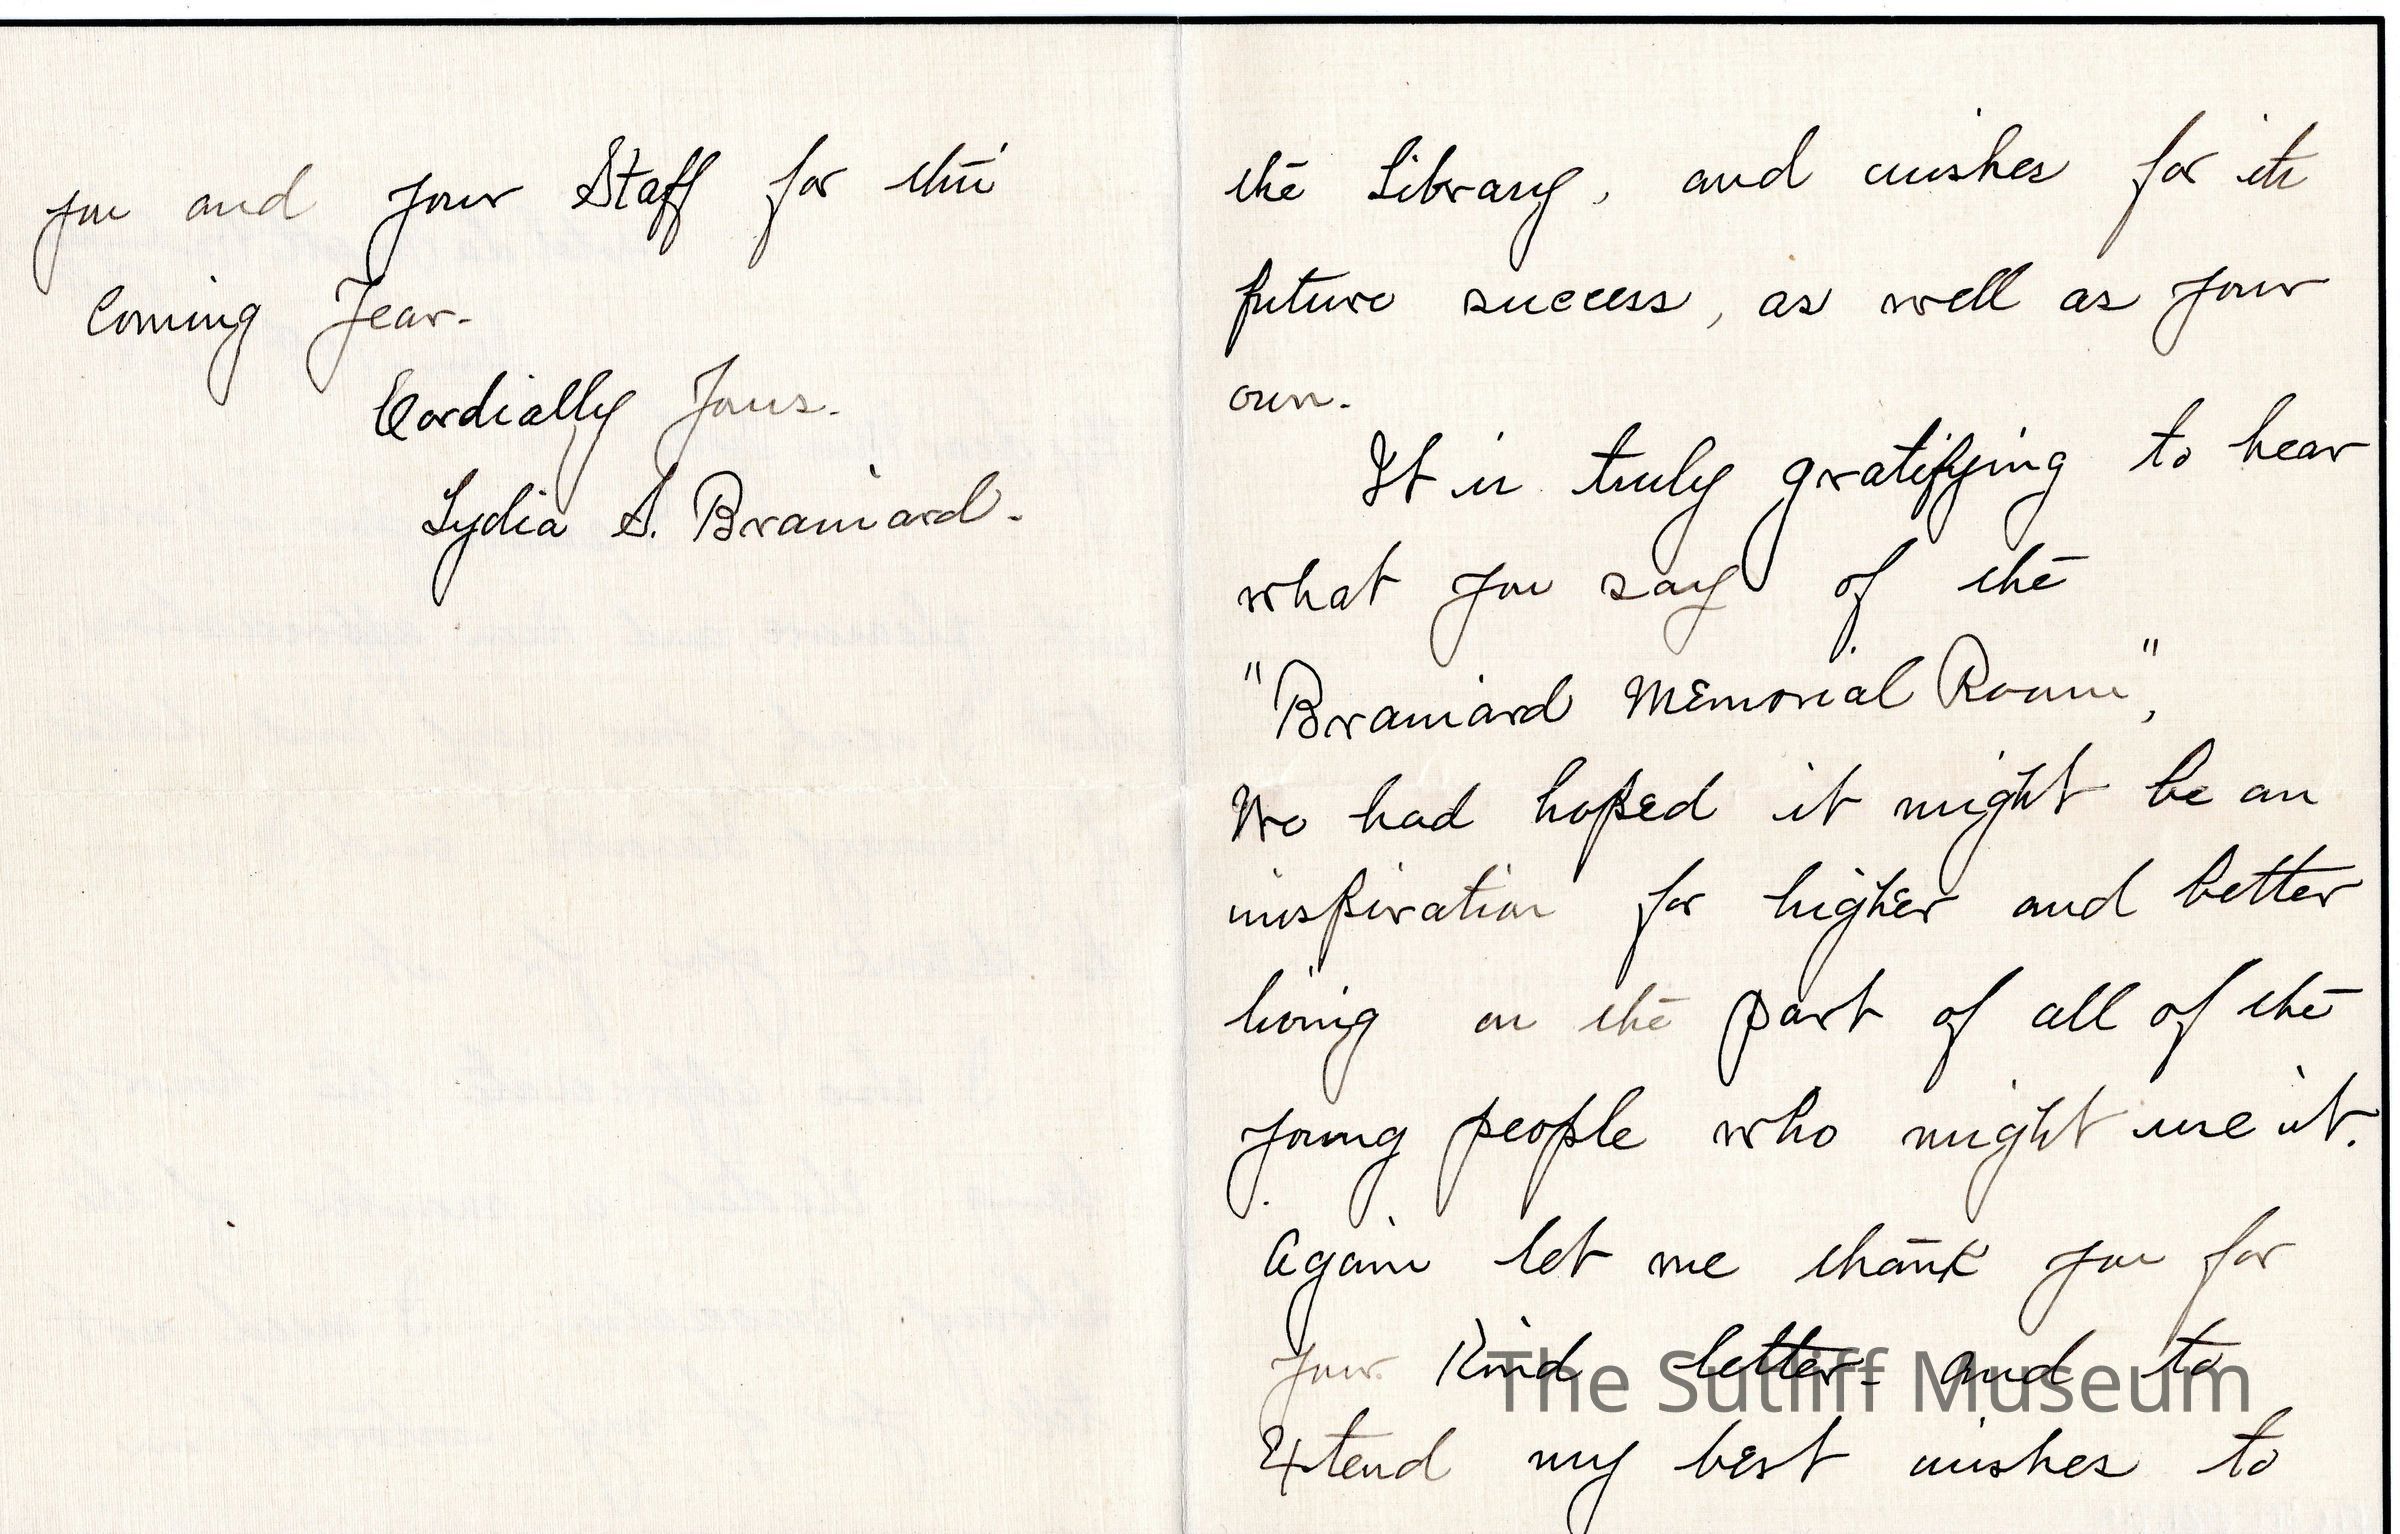 the Library, and wishes for its
future success, as well as your
own.
It is truly gratifying to hear
what you say of the
"Brainard Memorial Room",
We had hoped it might be an
inspiration for higher and better
living on the part of all of the
young people who might use it.
Again let me thank you for
your kind letter - and to
Extend my best wishes to
you and your Staff for this
Coming Year.
Cordially Yours.
Lydia S. Brainard.
The Sutliff Museum